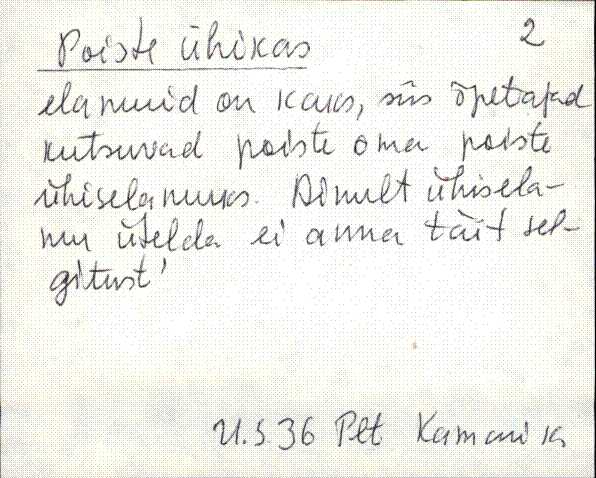 2
Poiste ühikas
elamuid on kaks, siis õpetajad
kutsuvad poiste oma poiste
ühiselamuks. Ainult ühisela-
mu ütelda ei anna täit sel-
gitust'
U.S.36 Plt Kamarik